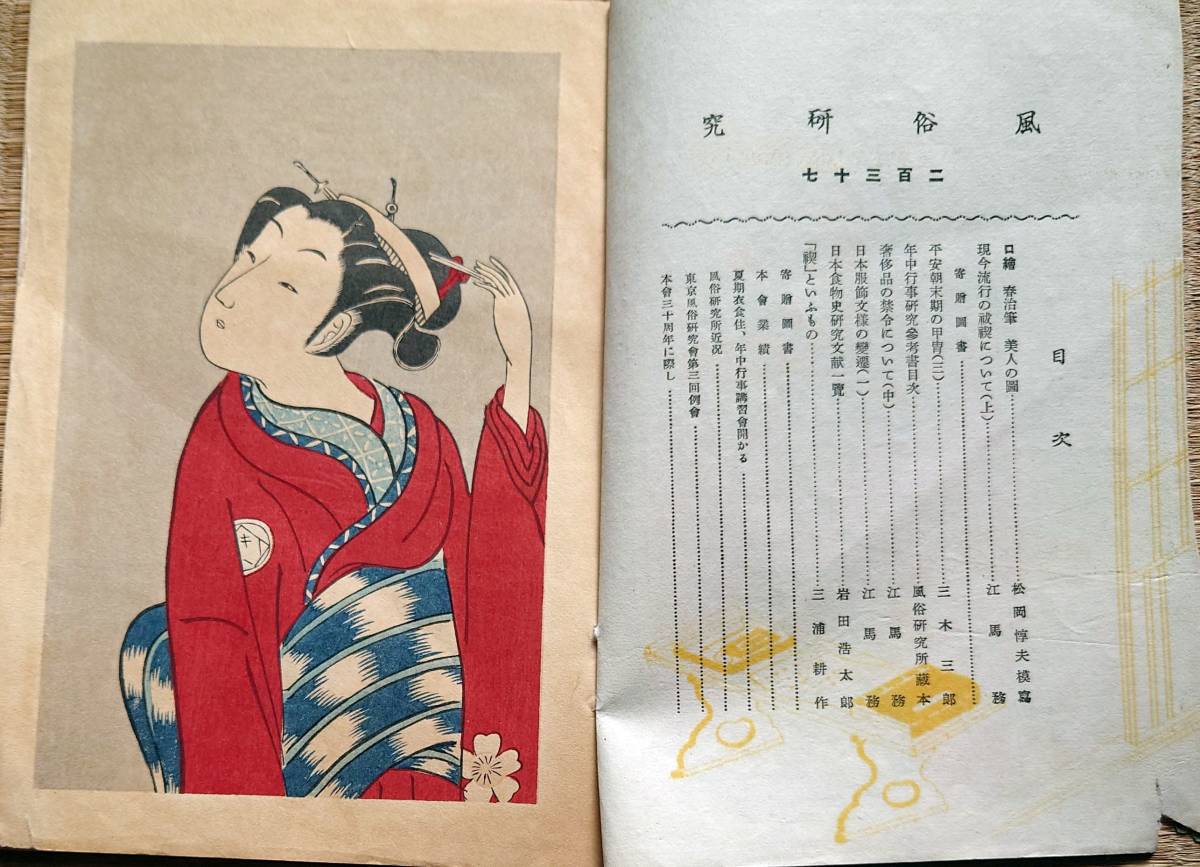 風俗研究
二百三十七
目次
口繪 春治筆 美人の圖……松岡惇夫模寫
現今流行の祓禊について(上)……江馬務
寄贈圖書……
平安朝末期の甲冑(三)……三木三郎
年中行事研究參考書目次……風俗研究所藏本
奢侈品の禁令について(中)……江馬務
日本服飾文樣の變遷(一)……江馬務
日本食物史研究文献一覽……岩田浩太郎
「禊」といふもの……三浦耕作
寄贈圖書……
本會業績……
夏期衣食住、年中行事講習會開かる……
風俗研究所近況……
東京風俗研究會第三回例會……
本會三十周年に際し……
キ